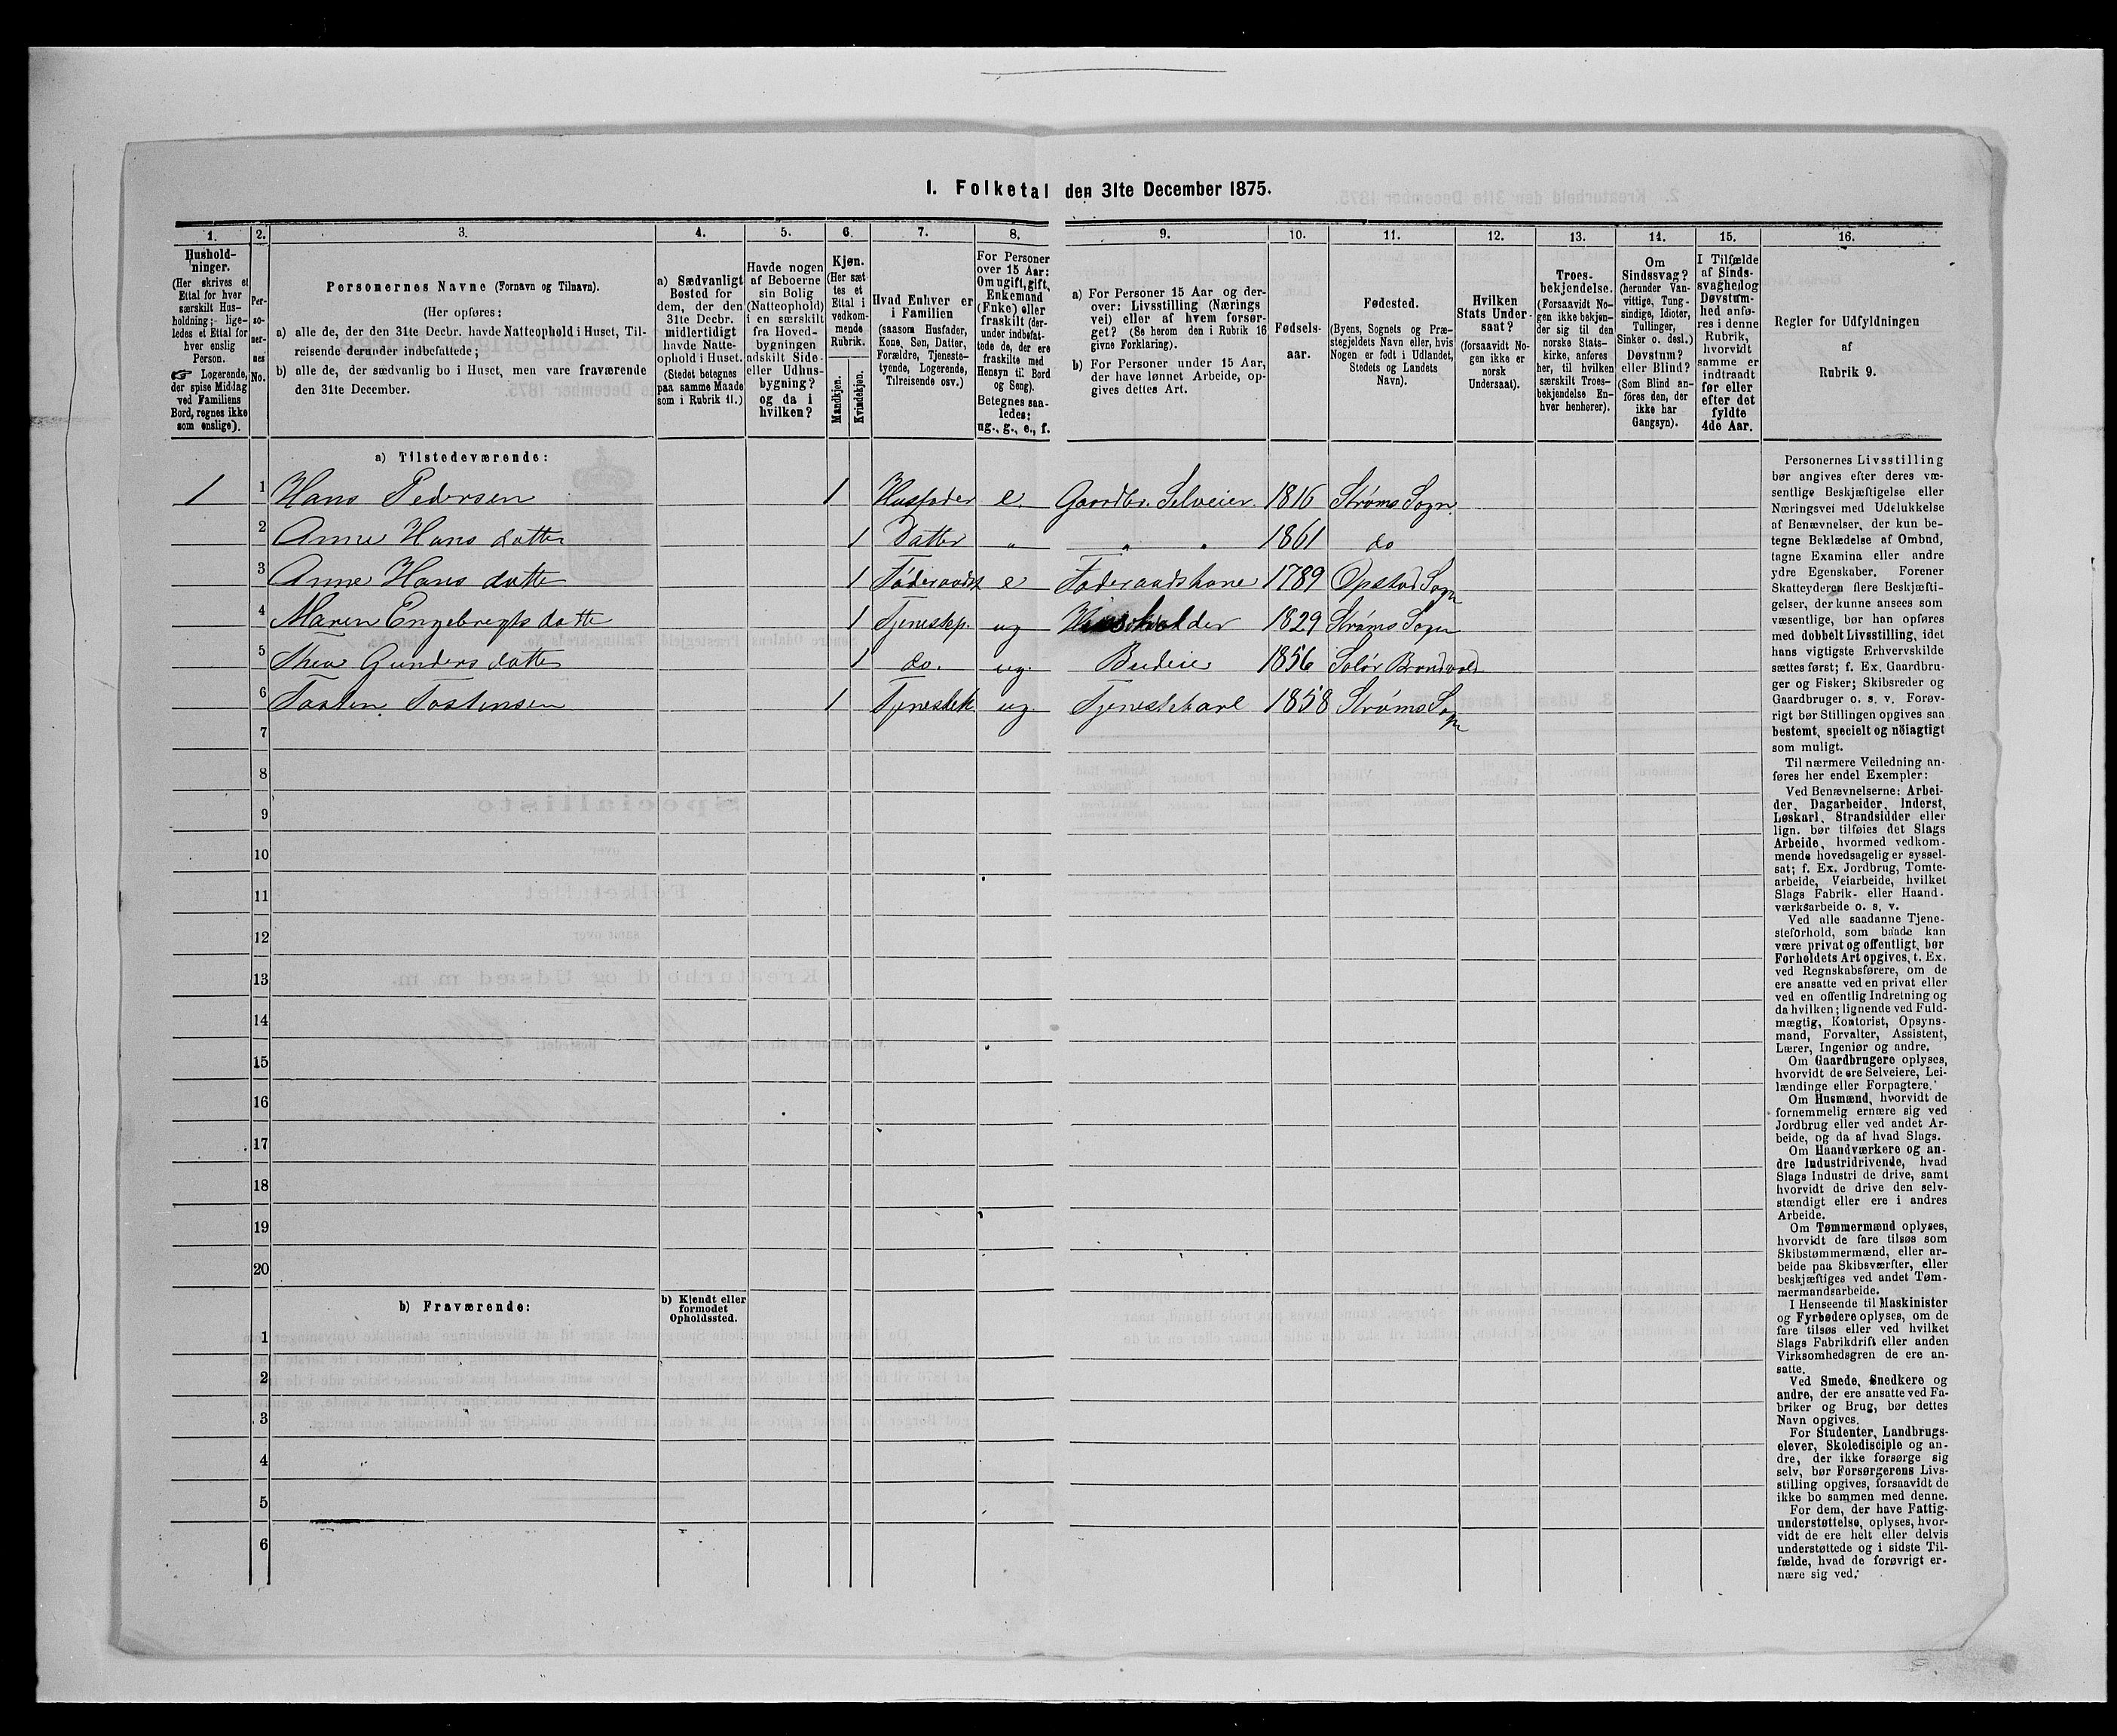 I. Folketal den 31te December 1875.
1. 2. 3. 4. 5. 6. 7. 8. 9. 10. 11. 12. 13. 14. 15. 16.
Hushold-
ninger.
(Her skrives et
Ettal for hver
særskilt Hus-
holdning; lige-
ledes et Ettal for
hver enslig
Person.
☞ Logerende,
der spise Middag
ved Familiens
Bord, regnes ikke
som enslige).
Per-
so-
ner-
nes
No.
Personernes Navne (Fornavn og Tilnavn).
(Her opføres:
a) alle de, der den 31te Decbr. havde Natteophold i Huset, Til-
reisende derunder indbefattede;
b) alle de, der sædvanlig bo i Huset, men vare fraværende
den 31te December.
a) Sædvanligt
Bosted for
dem, der den
31te Decbr.
midlertidigt
havde Natte-
ophold i Huset.
(Stedet betegnes
paa samme Maade
som i Rubrik 11.)
Havde nogen
af Beboerne
sin Bolig
(Natteophold)
i en særskilt
fra Hoved-
bygningen
adskilt Side-
eller Udhus-
bygning?
og da i
hvilken?
Kjøn.
(Her sæt
tes et
Ettal i
vedkom-
mende
Rubrik.
Mandkjøn.
Kvindekjøn.
Hvad Enhver er
i Familien
(saasom Husfader,
Kone, Søn, Datter,
Forældre, Tjeneste-
tyende, Logerende,
Tilreisende osv.)
For Personer
over 15 Aar:
Om ugift, gift,
Enkemand
(Enke) eller
fraskilt (der-
under indbefat-
tede de, der ere
fraskilte med
Hensyn til Bord
og Seng).
Betegnes saa-
ledes:
ug., g., e., f.
a) For Personer 15 Aar og der-
over: Livsstilling (Nærings
vei) eller af hvem forsør-
get? (Se herom den i Rubrik 16
givne Forklaring).
b) For Personer under 15 Aar,
der have lønnet Arbeide, op-
gives dettes Art.
Fødsels-
aar.
Fødested.
(Byens, Sognets og Præ-
stegjeldets Navn eller, hvis
Nogen er født i Udlandet,
Stedets og Landets
Navn).
Hvilken
Stats Under-
saat?
(forsaavidt No-
gen ikke er
norsk
Undersaat).
Troes-
bekjendelse.
(Forsaavidt No-
gen ikke bekjen-
der sig til den
norske Stats-
kirke, anføres
her, til hvilken
særskilt Troes-
bekjendelse En-
hver henhører).
Om
Sindssvag?
(herunder Van-
vittige, Tung-
sindige, Idioter,
Tullinger,
Sinker o. desl.)
Døvstum?
eller Blind?
(Som Blind an-
føres den, der
ikke har
Gangsyn).
I Tilfælde
af Sinds-
svaghed og
Døvstum-
hed anfø-
res i denne
Rubrik,
hvorvidt
samme er
indtraadt
før eller
efter det
fyldte
4de Aar.
Regler for Udfyldningen
af
Rubrik 9.
a) Tilstedeværende:
1 1 Hans Pedersen 1 Husfader e. Gaardbr. Selveier. 1816 Strøms Sogn
2 Anne Hans datter 1 Datter " " " 1861 do
3 Anne Hans datter 1 Føderaadsk e Føderaadskone 1789 Opstad Sogn
4 Maren Engebregts datter 1 Tjenestep. ug Husholder 1829 Strøms Sogn
5 Thea Gunders datter 1 do. ug. Budeie 1856 Solør Brandvold
6 Tosten Tostensen 1 Tjenestek. ug Tjenestekarl 1858 Strøms Sogn
7
8
9
10
11
12
13
14
15
16
17
18
19
20
b) Fraværende:
b) Kjendt eller
formodet
Opholdssted.
1
2
3
4
5
6
Personernes Livsstilling
bør angives efter deres væ-
sentlige Beskjæftigelse eller
Næringsvei med Udelukkelse
af Benævnelser, der kun be-
tegne Beklædelse af Ombud,
tagne Examina eller andre
ydre Egenskaber. Forener
Skatteyderen flere Beskjæfti-
gelser, der kunne ansees som
væsentlige, bør han opføres
med dobbelt Livsstilling, idet
hans vigtigste Erhvervskilde
sættes først; f. Ex. Gaardbru-
ger og Fisker; Skibsreder og
Gaardbruger o. s. v. Forøv-
rigt bør Stillingen opgives saa
bestemt, specielt og nöiagtigt
som muligt.
Til nærmere Veiledning an-
føres her endel Exempler:
Ved Benævnelserne: Arbei-
der, Dagarbeider, Inderst,
Løskarl, Strandsidder eller
lign. bør tilføies det Slags
Arbeide, hvormed vedkom-
mende hovedsagelig er syssel-
sat; f. Ex. Jordbrug, Tomte-
arbeide, Veiarbeide, hvilket
Slags Fabrik- eller Haand-
værksarbeide o. s. v.
Ved alle saadanne Tjene-
steforhold, som baade kan
være privat og offentligt, bør
Forholdets Art opgives, t. Ex.
ved Regnskabsførere, om de
ere ansatte ved en privat eller
ved en offentlig Indretning og
da hvilken; lignende ved Fuld-
mægtig, Kontorist, Opsyns-
mand, Forvalter, Assistent,
Lærer, Ingeniør og andre.
Om Gaardbrugere oplyses,
hvorvidt de ere Selveiere, Lei-
lændinge eller Forpagtere.
Om Husmænd, hvorvidt de
fornemmelig ernære sig ved
Jordbrug eller ved andet Ar-
beide, og da af hvad Slags.
Om Haandværkere og an-
dre Industridrivende, hvad
Slags Industri de drive, samt
hvorvidt de drive den selv-
stændigt eller ere i andres
Arbeide.
Om Tømmermænd oplyses,
hvorvidt de fare tilsøs som
Skibstømmermænd, eller ar-
beide paa Skibsværfter, eller
beskjæftiges ved andet Tøm-
mermandsarbeide.
I Henseende til Maskinister
og Fyrbødere oplyses, om de
fare tilsøs eller ved hvilket
Slags Fabrikdrift eller anden
Virksomhedsgren de ere an-
satte.
Ved Smede, Snedkere og
andre, der ere ansatte ved Fa-
briker og Brug, bør dettes
Navn opgives.
For Studenter, Landbrugs-
elever, Skoledisciple og an-
dre, der ikke forsørge sig
selv, bør Forsørgerens Livs-
stilling opgives, forsaavidt de
ikke bo sammen med denne.
For dem, der have Fattig-
understøttelse, oplyses, hvor-
vidt de ere helt eller delvis
understøttede og i sidste Til-
fælde, hvad de forøvrigt er-
nære sig ved.